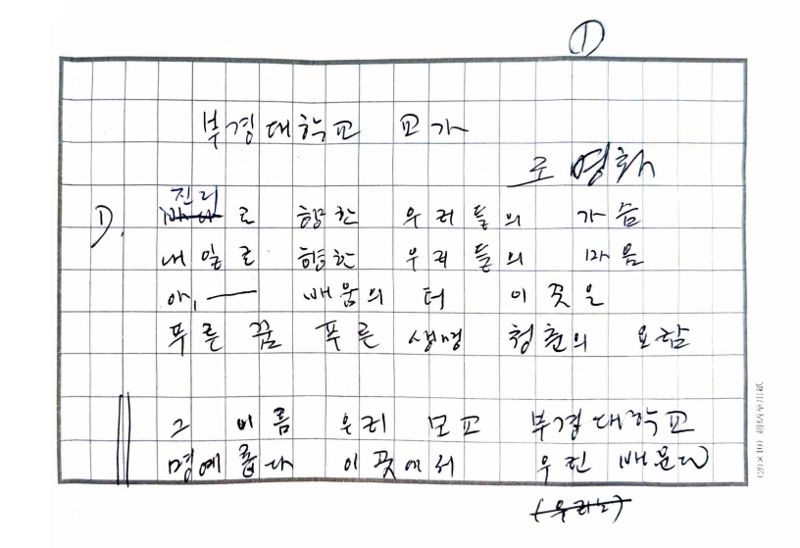 ①
부경대학교 교가
진리
①. 로 향한 우리들의 가슴
내일로 향한 우리들의 마음
아, — 배움의 터 이 곳은
푸른 꿈 푸른 생명 청춘의 요람
그 이름 우리 모교 부경대학교
명예롭다 이 곳에서 우린 배운다
(우리는)
(20×10)